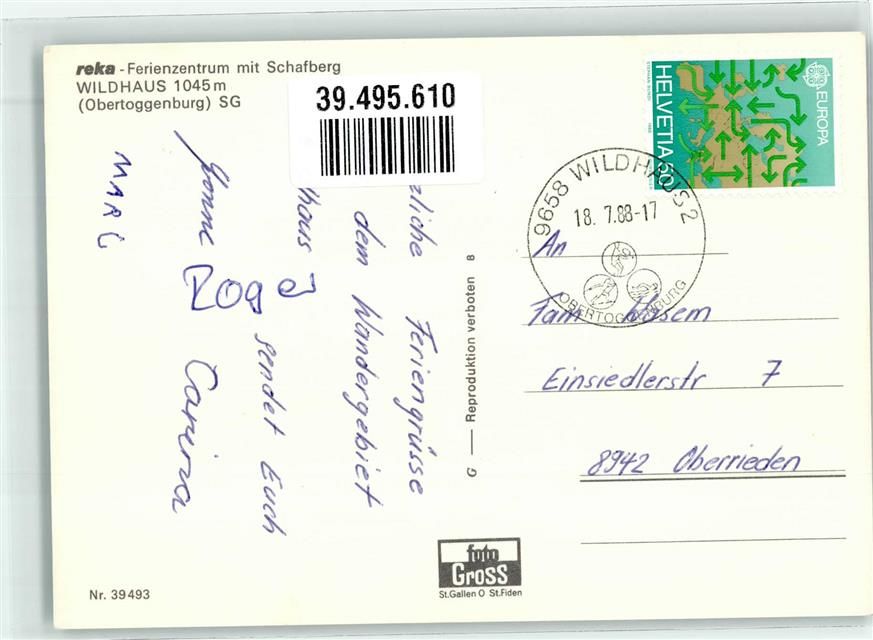 reka - Ferienzentrum mit Schafberg
WILDHAUS 1045 m
(Obertoggenburg) SG
39.495.610
zliche Feriengrüsse
dem Wandergebiet
dhaus sendet Euch
Yvonne Roger Carina
MARC
G — Reproduktion verboten 8
HELVETIA 50
EUROPA
9658 WILDHAUS 2
18. 7.88-17
OBERTOGGENBURG
An
Fam Hosem
Einsiedlerstr 7
8942 Oberrieden
foto
Gross
St.Gallen O St.Fiden
Nr. 39493